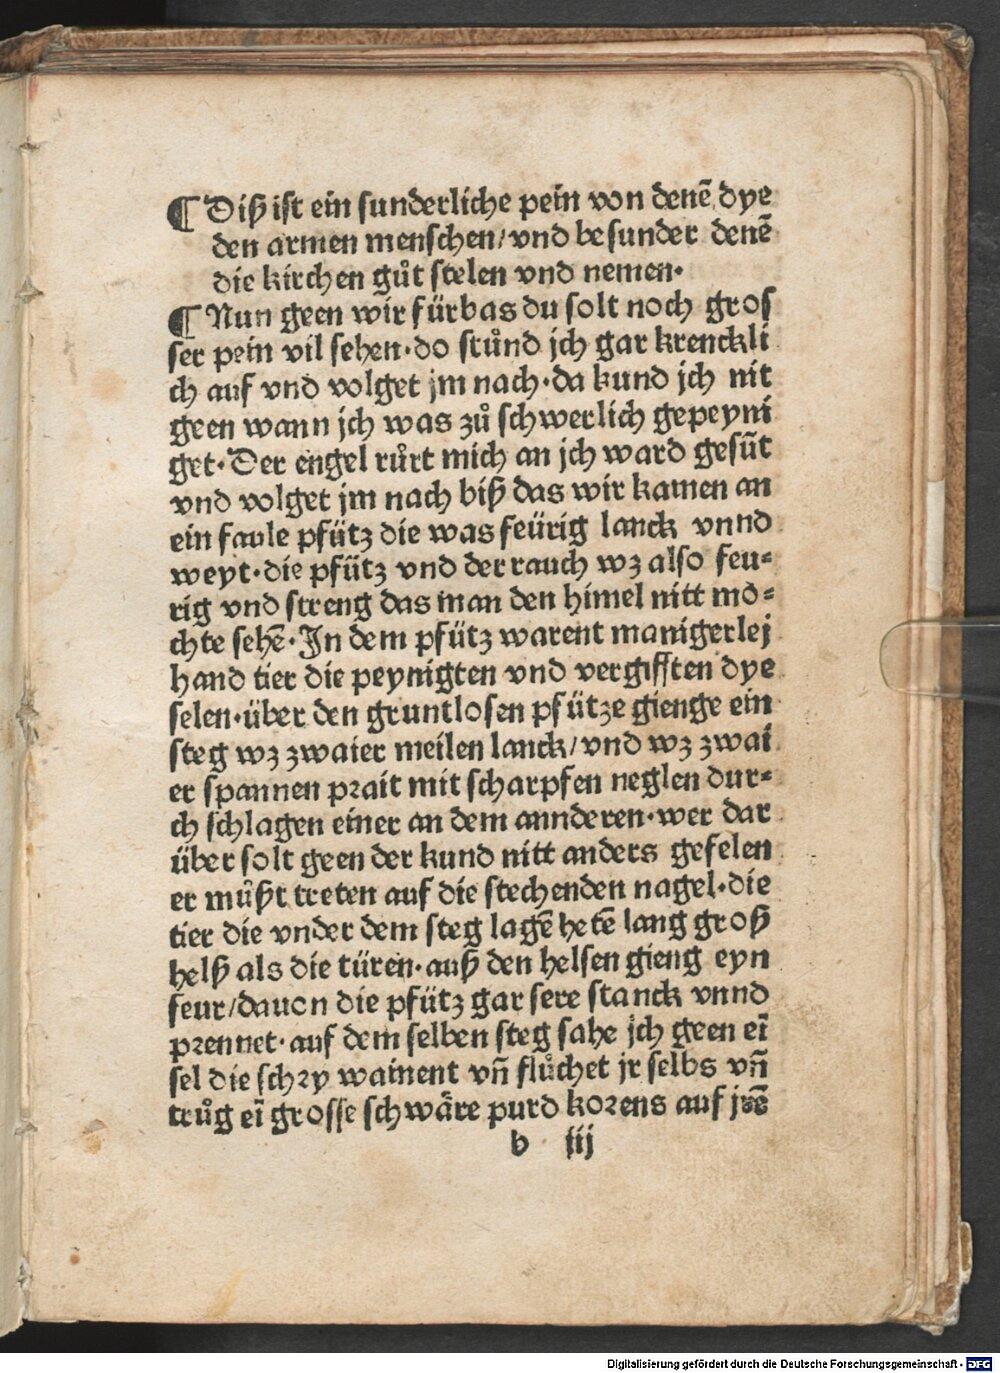 ¶ Diß ist ein sunderliche pein von denē dye
den armen menschen/vnd besunder denē
die kirchen gůt stelen vnd nemen.
¶ Nun geen wir fürbas du solt noch gros
ser pein vil sehen.do stůnd jch gar krenckli
ch auf vnd volget jm nach.da kund jch nit
geen wann jch was zů schwerlich gepeyni
get.Der engel růrt mich an jch ward gesūt
vnd volget jm nach biß das wir kamen an
ein faule pfütz die was feürig lanck vnnd
weyt.die pfütz vnd der rauch wz also feu-
rig vnd streng das man den himel nitt mo-
chte sehē.In dem pfütz warent manigerlej
hand tier die peynigten vnd vergifften dye
selen.über den gruntlosen pfütze gienge ein
steg wz zwaier meilen lanck/vnd wz zwai
er spannen prait mit scharpfen neglen dur-
ch schlagen einer an dem annderen.wer dar
über solt geen der kund nitt anders gefelen
er můßt treten auf die stechenden nagel.die
tier die vnder dem steg lagē hetē lang groß
helß als die türen.auß den helsen gieng eyn
feur/dauon die pfütz gar sere stanck vnnd
prennet.auf dem selben steg sahe jch geen eī
sel die schry wainent vñ flůchet jr selbs vñ
trůg eī grosse schwäre purd korens auf jrē
b iij
Digitalisierung gefördert durch die Deutsche Forschungsgemeinschaft - DFG